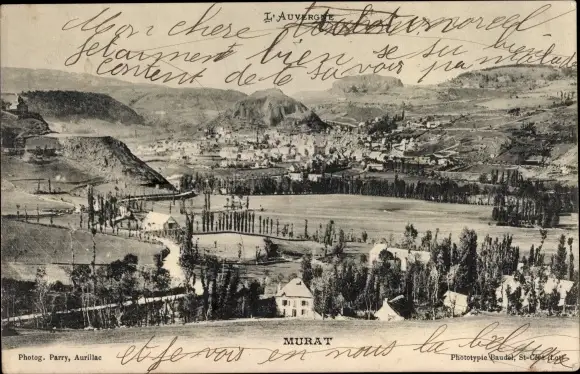 L'AUVERGNE
Mon chere
bien se su bien
content de te savoir pa malade
MURAT
Photog. Parry, Aurillac
Phototypie Baudel, St-Céré (Lot)
et je vois en nous la belgique